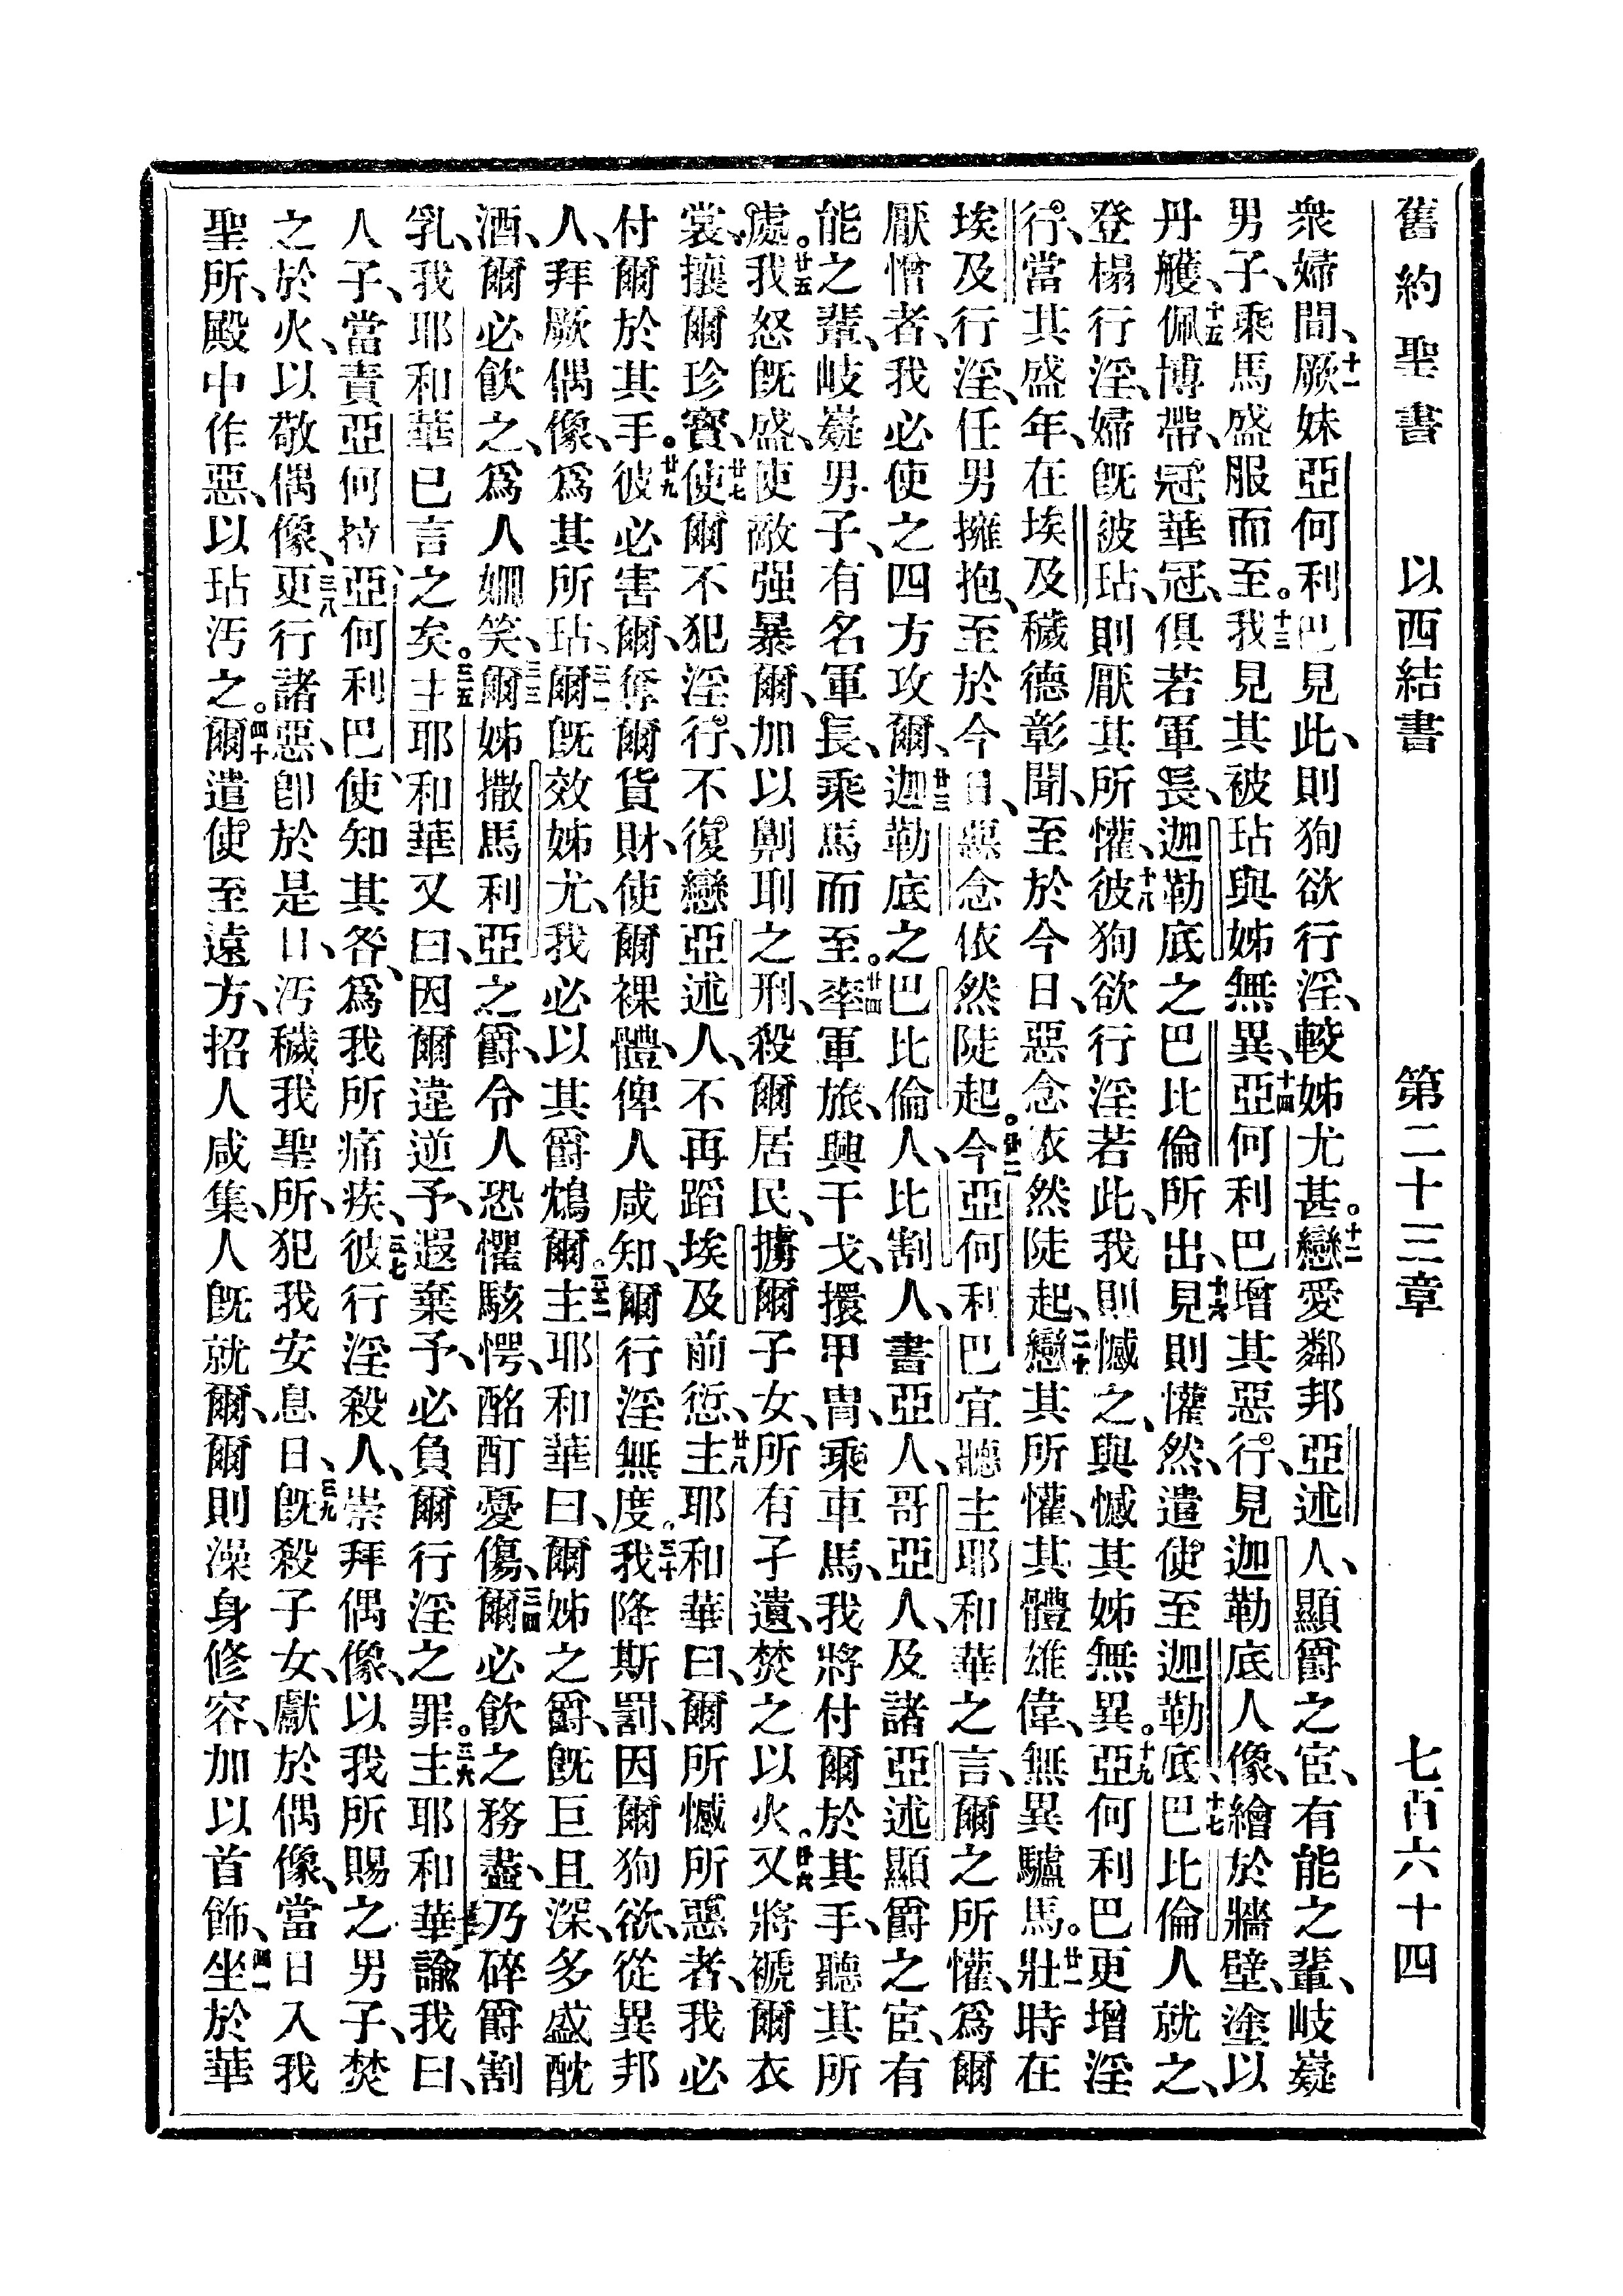 舊約聖書 以西結書 第二十三章 七百六十四
衆婦間、十一厥妹亞何利巴見此、則狥欲行淫、較姊尤甚。十二戀愛鄰邦亞述人、顯爵之宦、有能之輩、岐嶷
男子、乘馬盛服而至。十三我見其被玷與姊無異、十四亞何利巴增其惡行、見迦勒底人像、繪於牆壁、塗以
丹雘、十五佩博帶、冠華冠、俱若軍長、迦勒底之巴比倫所出、十六見則懽然、遣使至迦勒底、十七巴比倫人就之、
登榻行淫、婦旣被玷、則厭其所懽、十八彼狥欲行淫若此、我則憾之、與憾其姊無異。十九亞何利巴更增淫
行、當其盛年、在埃及穢德彰聞、至於今日、惡念依然陡起、二十戀其所懽、其體雄偉、無異驢馬。廿一壯時在
埃及行淫、任男擁抱、至於今日、惡念依然陡起。廿二今亞何利巴宜聽主耶和華之言、爾之所懽、爲爾
厭憎者、我必使之四方攻爾、廿三迦勒底之巴比倫人、比割人、書亞人、哥亞人、及諸亞述顯爵之宦、有
能之輩、岐嶷男子、有名軍長、乘馬而至。廿四率軍旅、興干戈、擐甲冑、乘車馬、我將付爾於其手、聽其所
處。廿五我怒旣盛、使敵强暴爾、加以劓刵之刑、殺爾居民、擄爾子女、所有孑遺、焚之以火。廿六又將褫爾衣
裳、攘爾珍寶、廿七使爾不犯淫行、不復戀亞述人、不再蹈埃及前愆、廿八主耶和華曰、爾所憾所惡者、我必
付爾於其手。廿九彼必害爾、奪爾貨財、使爾裸體、俾人咸知、爾行淫無度。三十我降斯罰、因爾狥欲、從異邦
人、拜厥偶像、爲其所玷、三一爾旣效姊尤、我必以其爵酖爾。三二主耶和華曰、爾姊之爵、旣巨且深、多盛酖
酒、爾必飲之、爲人姍笑、三三爾姊撒馬利亞之爵、令人恐懼駭愕、酩酊憂傷、三四爾必飲之務盡、乃碎爵割
乳、我耶和華已言之矣。三五主耶和華又曰、因爾違逆予、遐棄予、必負爾行淫之罪。三六主耶和華諭我曰、
人子、當責亞何拉、亞何利巴、使知其咎、爲我所痛疾、三七彼行淫殺人、崇拜偶像、以我所賜之男子、焚
之於火、以敬偶像、三八更行諸惡、卽於是日、汚穢我聖所、犯我安息日、三九旣殺子女、獻於偶像、當日入我
聖所、殿中作惡、以玷汚之。四十爾遣使至遠方、招人咸集、人旣就爾、爾則澡身修容、加以首飾、四一坐於華